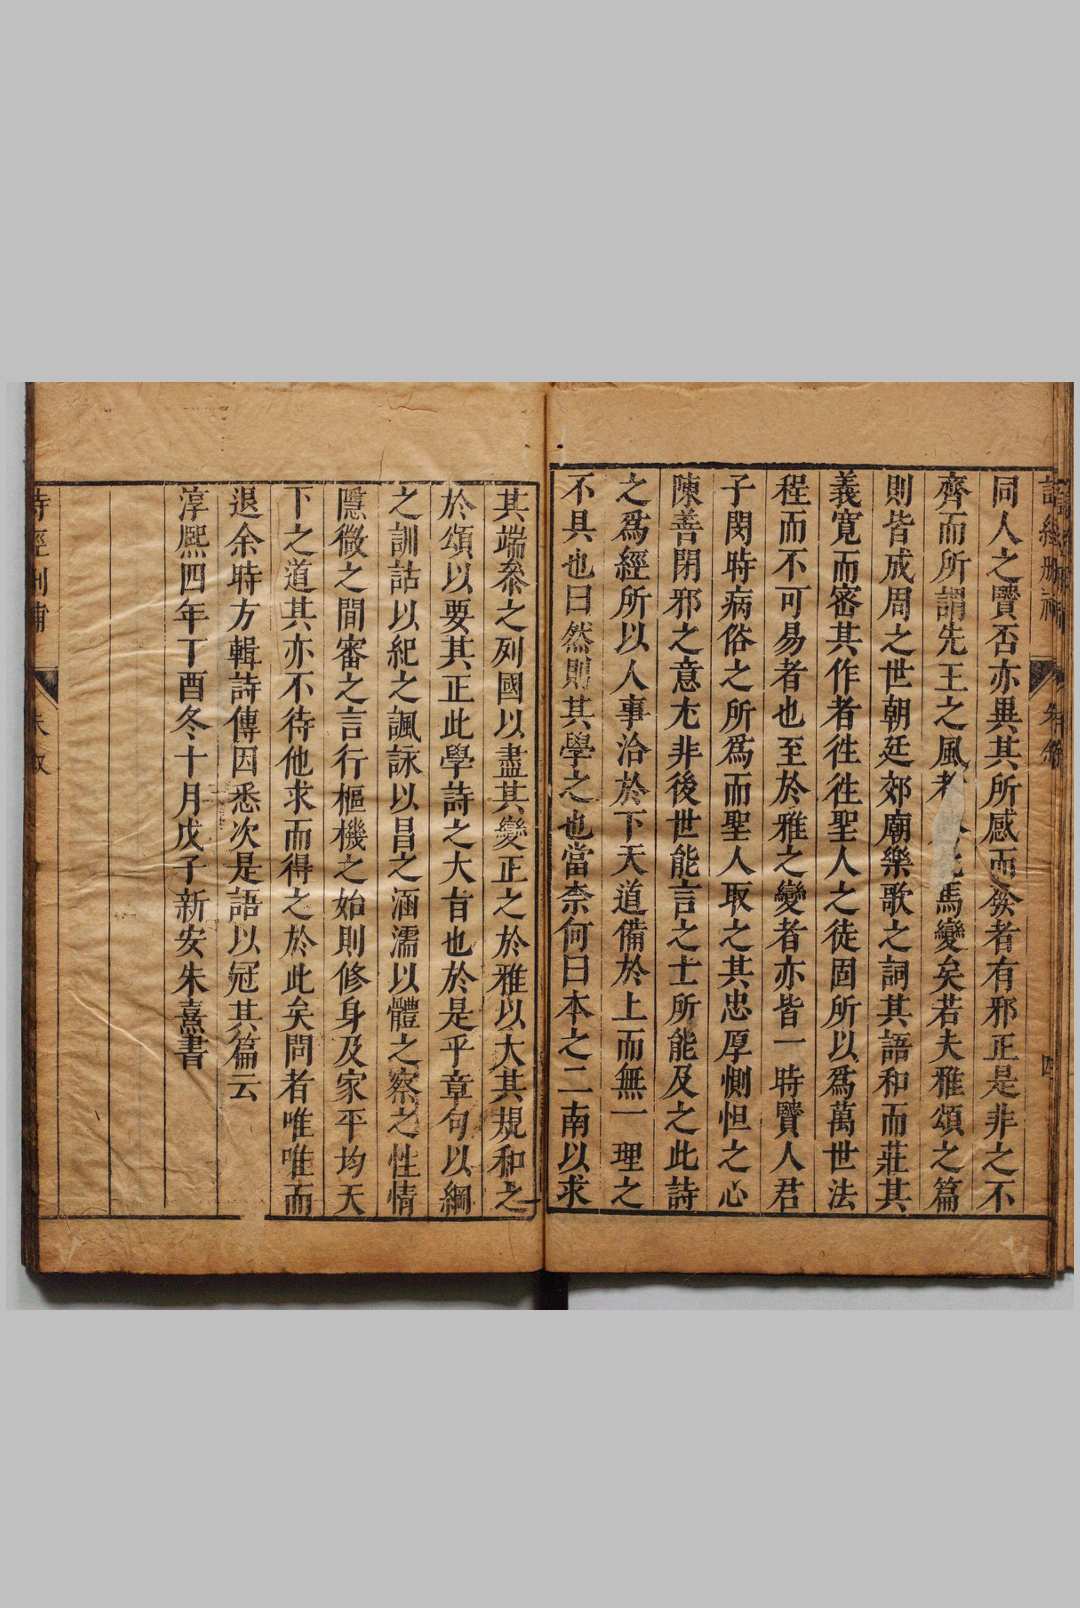 同人之賢否亦異其所感而發者有邪正是非之不
齊而所謂先王之風者 此焉變矣若夫雅頌之篇
則皆成周之世朝廷郊廟樂歌之詞其語和而莊其
義寬而密其作者徃徃聖人之徒固所以爲萬世法
程而不可易者也至於雅之變者亦皆一時賢人君
子閔時病俗之所爲而聖人取之其忠厚惻怛之心
陳善閉邪之意尤非後世能言之士所能及之此詩
之爲經所以人事洽於下天道備於上而無一理之
不具也曰然則其學之也當柰何曰本之二南以求
其端叅之列國以盡其變正之於雅以大其規和之
於頌以要其止此學詩之大㫖也於是乎章句以綱
之訓詁以紀之諷詠以昌之涵濡以體之察之性情
隱微之間審之言行樞機之始則修身及家平均天
下之道其亦不待他求而得之於此矣問者唯唯而
退余時方輯詩傳因悉次是語以冠其篇云
淳熙四年丁酉冬十月戊子新安朱熹書